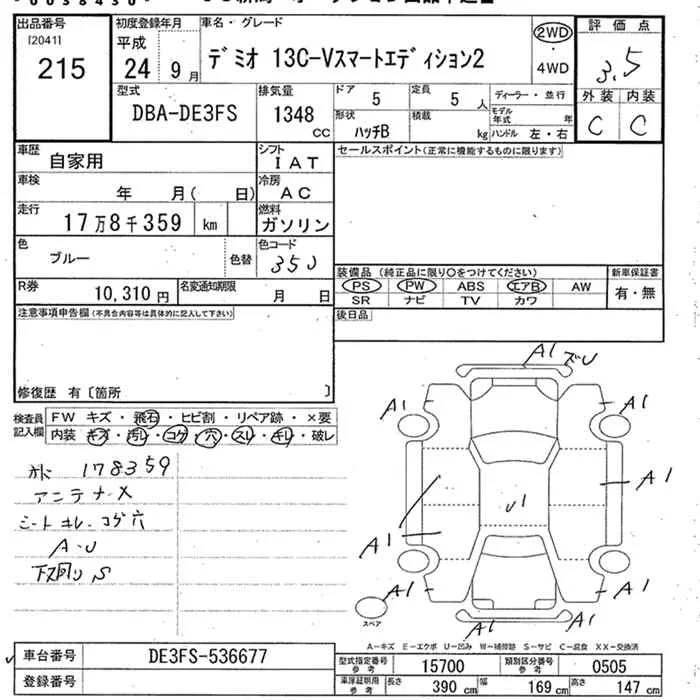 出品番号
[2041]
215
初度登録年月
平成
24 9月
車名・グレード
デミオ 13C-Vスマートエディション2
2WD
・
4WD
評価点
3.5
外装 内装
C C
型式
DBA-DE3FS
排気量
1348
CC
ドア
5
定員
5 人
形状
ハッチB
積載
kg
ディーラー・並行
モデル
年式 年
ハンドル 左・右
車歴
自家用
シフト
IAT
車検
年 月( 日)
冷房
AC
走行
17万8千359 km
燃料
ガソリン
色
ブルー
色替
色コード
35J
R券
10,310円
名変通知期限
月 日
セールスポイント(正常に機能するものに限ります)
装備品 (純正品に限り〇をつけてください)
PS PW ABS エアB AW
SR ナビ TV カワ
新車保証書
有・無
後日品
注意事項申告欄(不具合内容等は具体的に記入して下さい)
修復歴 有〔箇所 〕
検査員
記入欄
FW キズ・飛石・ヒビ割・リペア跡・×要
内装 キズ・汚レ・コゲ・穴・スレ・キレ・破レ
178359
アンテナX
シートキレ・コゲ穴
A・U
下回りS
A1
A1
A1
A1
A1
U1
A1
A1
A1
スペア
A-キズ E-エクボ U-凹み W-補修跡 S-サビ C-腐食 XX-交換済
車台番号
DE3FS-536677
登録番号
型式指定番号
参考
15700
類別区分番号
参考
0505
車庫証明用
参考
長さ
390 cm
幅
169 cm
高さ
147 cm